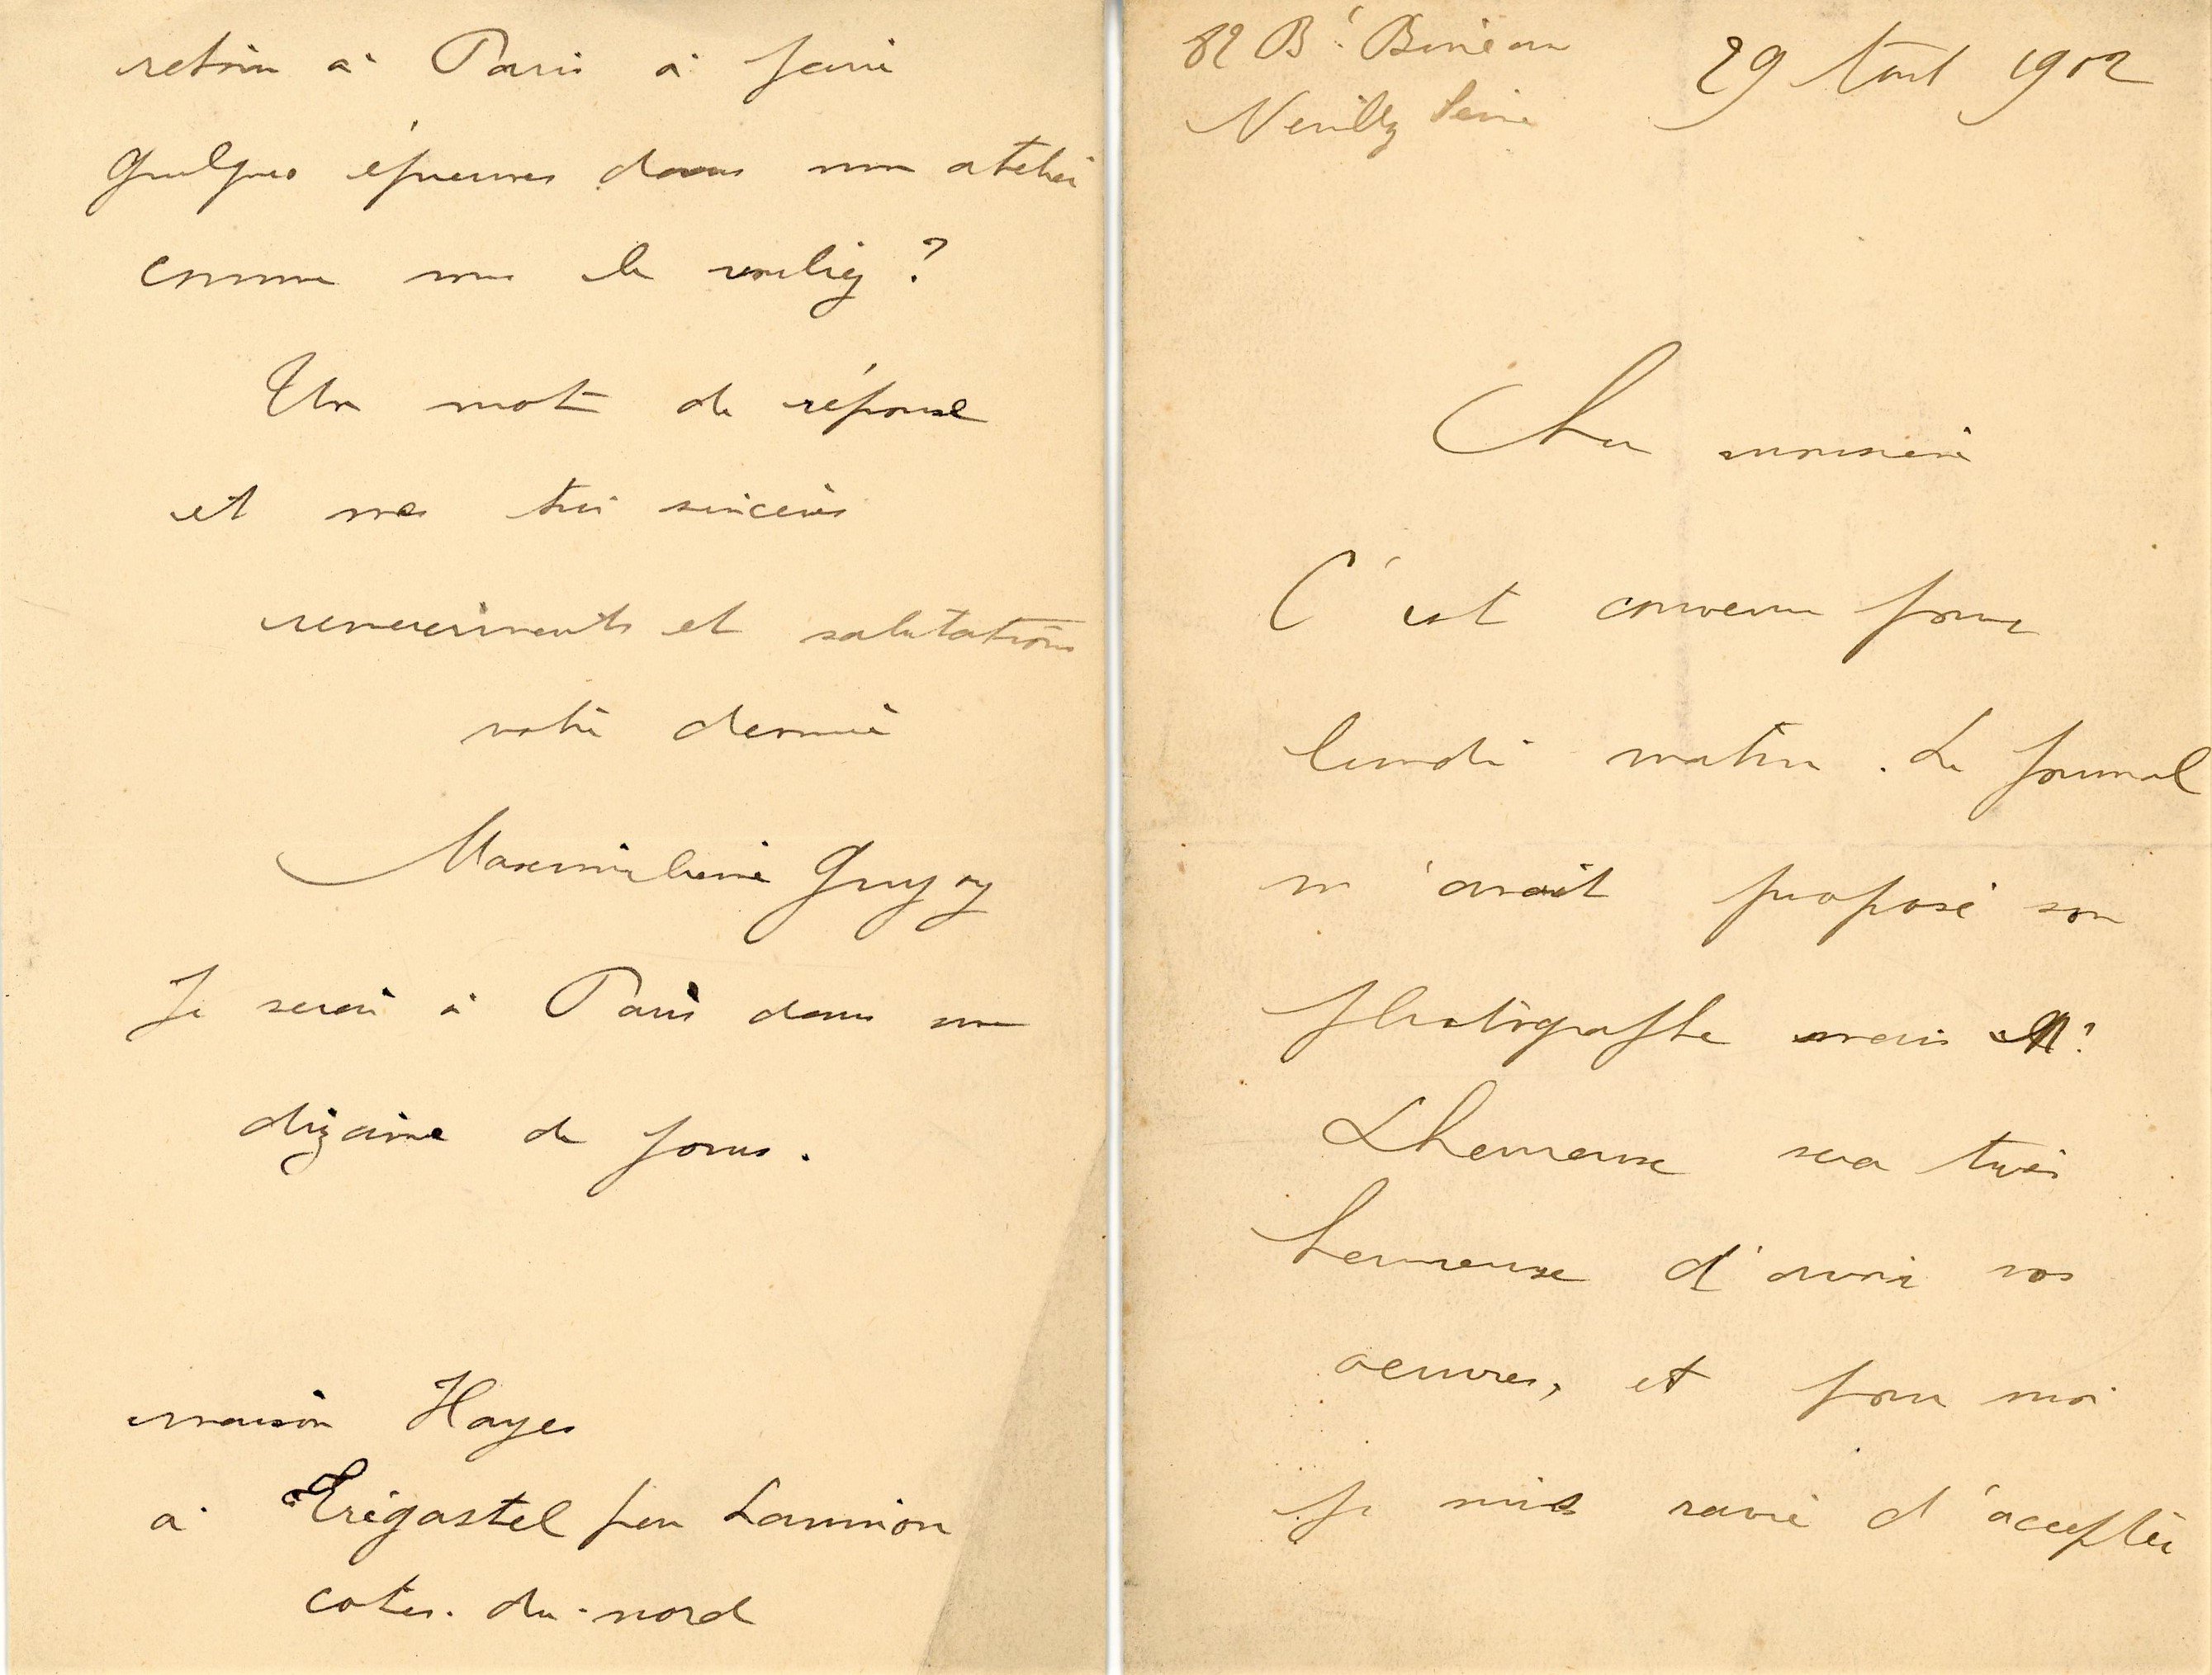 82 Bd Bineau
Neuilly Seine
29 Aout 1902
Cher monsieur
C'est convenu pour
lundi matin. Le journal
m'avait proposé son
photographe mais Me
Lheureux sera très
heureuse d'avoir vos
oeuvres, et pour moi
je suis ravie d'accepter
retour à Paris à faire
quelques épreuves dans mon atelier
comme vous le vouliez ?
Un mot de réponse
et mes très sincères
remerciements et salutations
votre dévouée
Maximilienne Guyon
Je serai à Paris dans une
dizaine de jours.
maison Hayes
à Trégastel par Lannion
cotes-du-nord